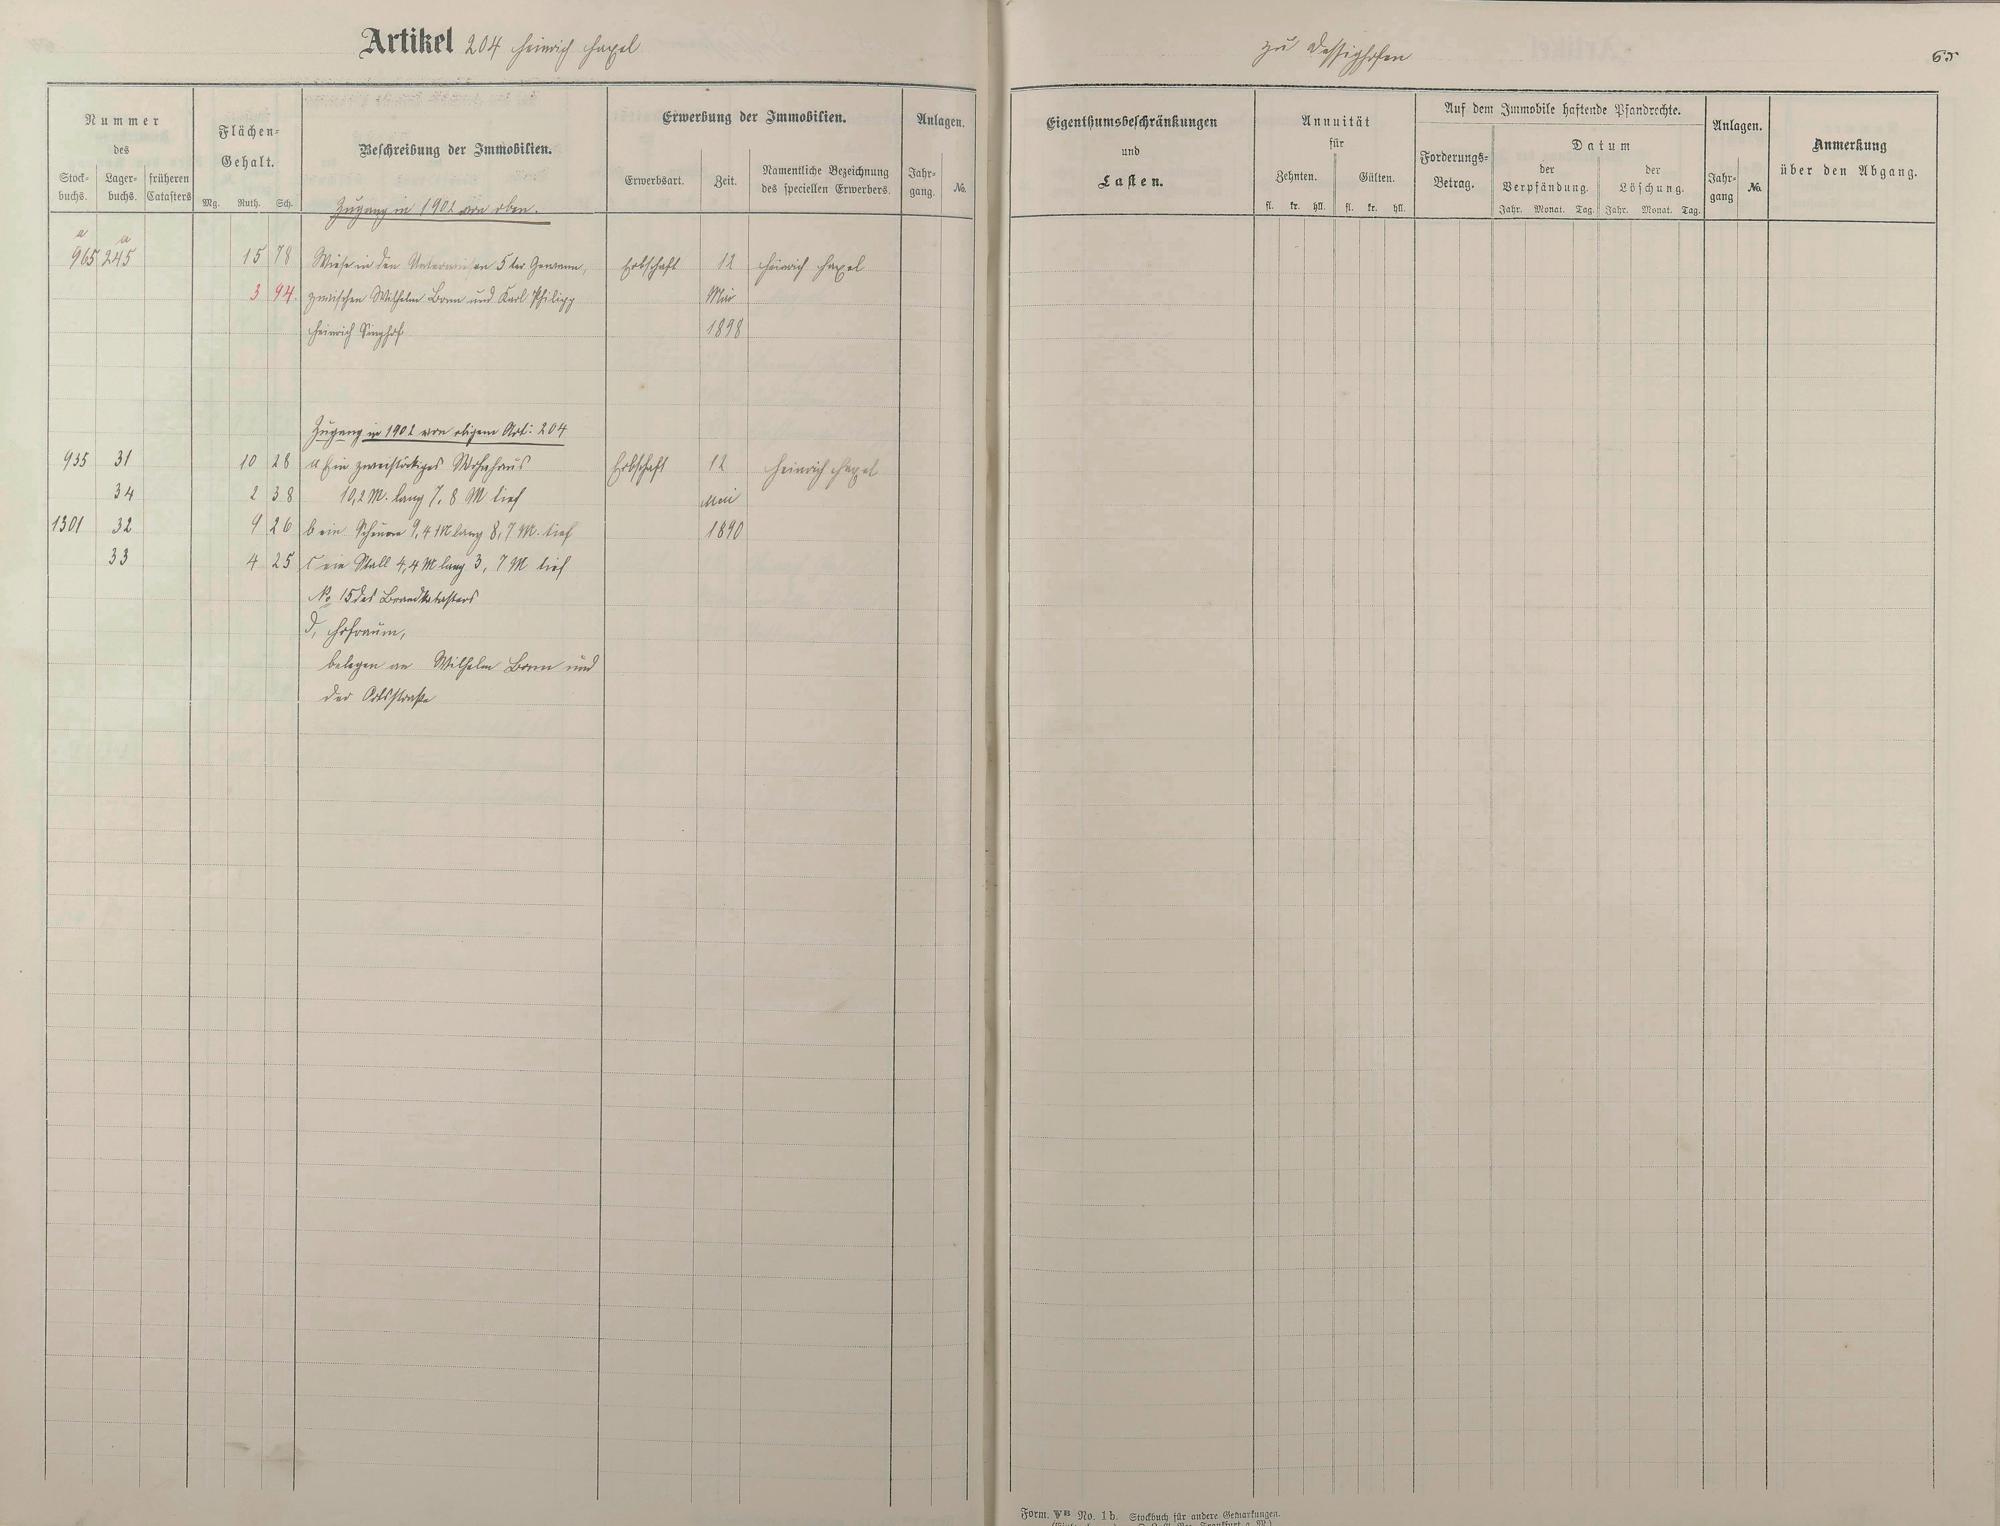 Artikel 204 Heinrich Haxel
zu Dessighofen
65
Nummer
des
Stock-
buchs.
Lager-
buchs.
früheren
Catasters
Flächen-
Gehalt.
Mg. Ruth. Sch.
Beschreibung der Immobilien.
Erwerbung der Immobilien.
Erwerbsart.
Zeit.
Namentliche Bezeichnung
des speciellen Erwerbers.
Anlagen.
Jahr-
gang.
No.
Eigenthumsbeschränkungen
und
Lasten.
Annuität
für
Zehnten.
Gülten.
fl. kr. hll. fl. kr. hll.
Auf dem Immobile haftende Pfandrechte.
Forderungs-
Betrag.
Datum
der
Verpfändung.
der
Löschung.
Jahr. Monat. Tag. Jahr. Monat. Tag.
Anlagen.
Jahr-
gang
No.
Anmerkung
über den Abgang.
Zugang in 1902 von oben.
a a
965 245 15 78 Wiese in den Unterwiesen 5ter Gewann, Erbschaft 12 Heinrich Haxel
3 94. zwischen Wilhelm Bonn und Karl Philipp Mai
Heinrich Singhof 1898
Zugang in 1902 von obigem Art: 204
935 31 10 28 a Ein zweistöckiges Wohnhaus Erbschaft 12 Heinrich Haxel
34 2 38 10,2 M. lang 7,8 M tief Mai
1301 32 9 26 b ein Scheune 9,4 M lang 8,7 M. tief 1890
33 4 25 c ein Stall 4,4 M lang 3,7 M tief
No 15 des Brandkatasters
d, Hofraum,
belegen an Wilhelm Bonn und
der Ortsstraße
Form. WB No. 1b. Stockbuch für andere Gemarkungen.